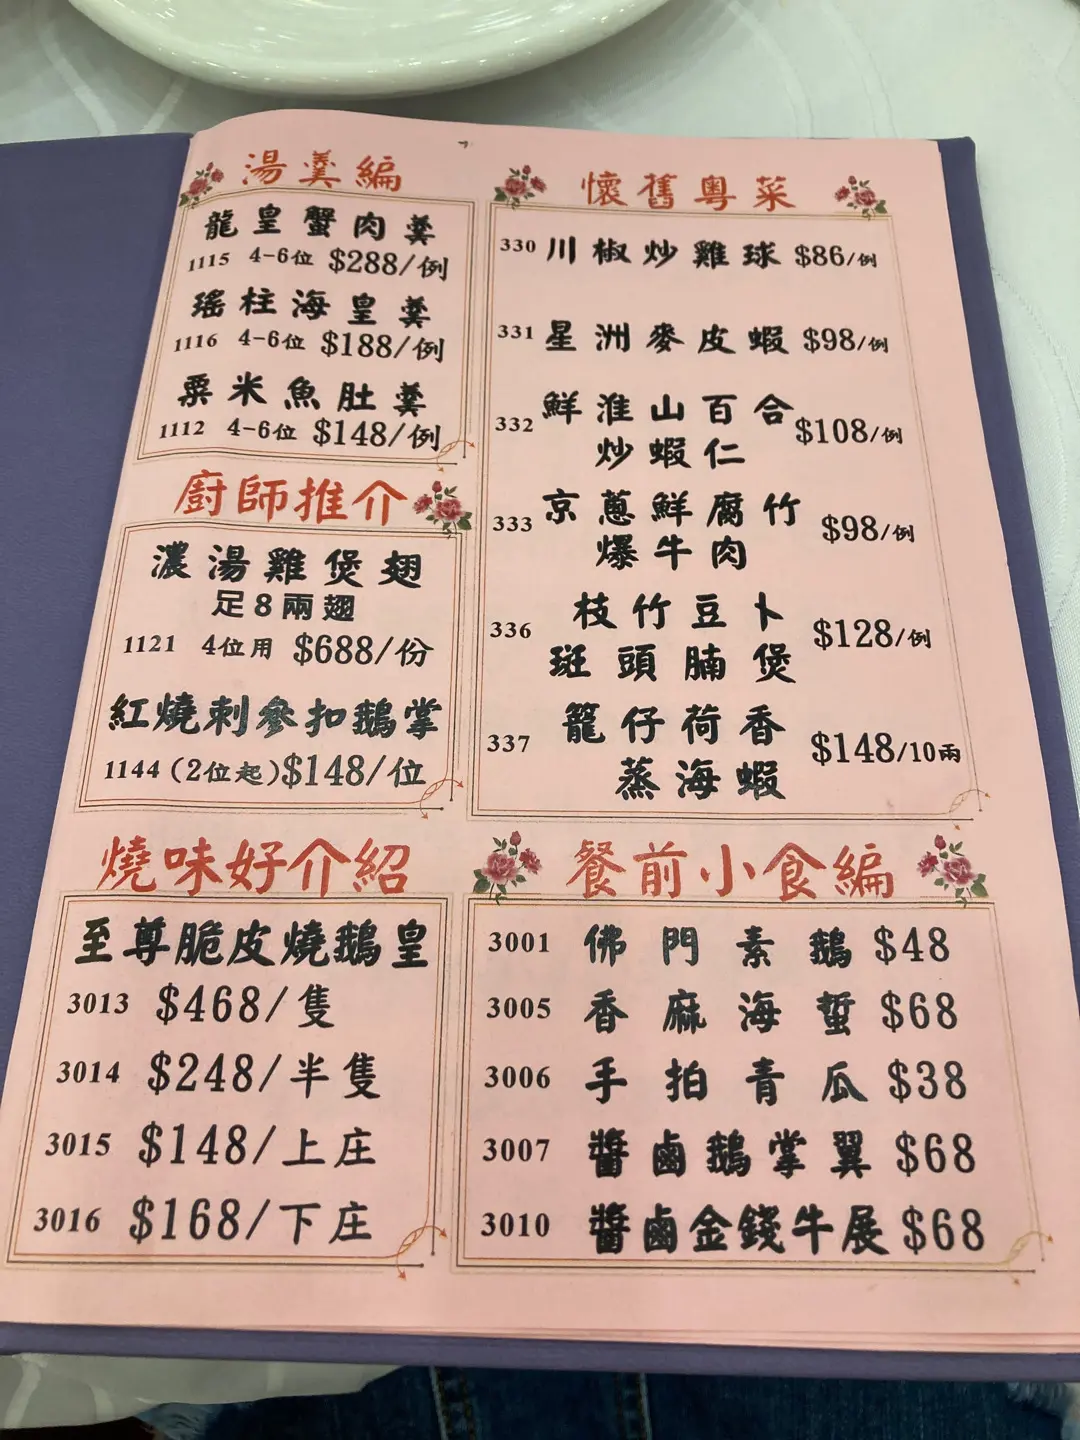 湯羹編
龍皇蟹肉羹
1115 4-6位 $288/例
瑤柱海皇羹
1116 4-6位 $188/例
粟米魚肚羹
1112 4-6位 $148/例
廚師推介
濃湯雞煲翅
足8兩翅
1121 4位用 $688/份
紅燒刺參扣鵝掌
1144 (2位起) $148/位
燒味好介紹
至尊脆皮燒鵝皇
3013 $468/隻
3014 $248/半隻
3015 $148/上庄
3016 $168/下庄
懷舊粵菜
330 川椒炒雞球 $86/例
331 星洲麥皮蝦 $98/例
332 鮮淮山百合 $108/例
炒蝦仁
333 京蔥鮮腐竹 $98/例
爆牛肉
336 枝竹豆卜 $128/例
斑頭腩煲
337 籠仔荷香 $148/10兩
蒸海蝦
餐前小食編
3001 佛門素鵝 $48
3005 香麻海蜇 $68
3006 手拍青瓜 $38
3007 醬鹵鵝掌翼 $68
3010 醬鹵金錢牛展 $68